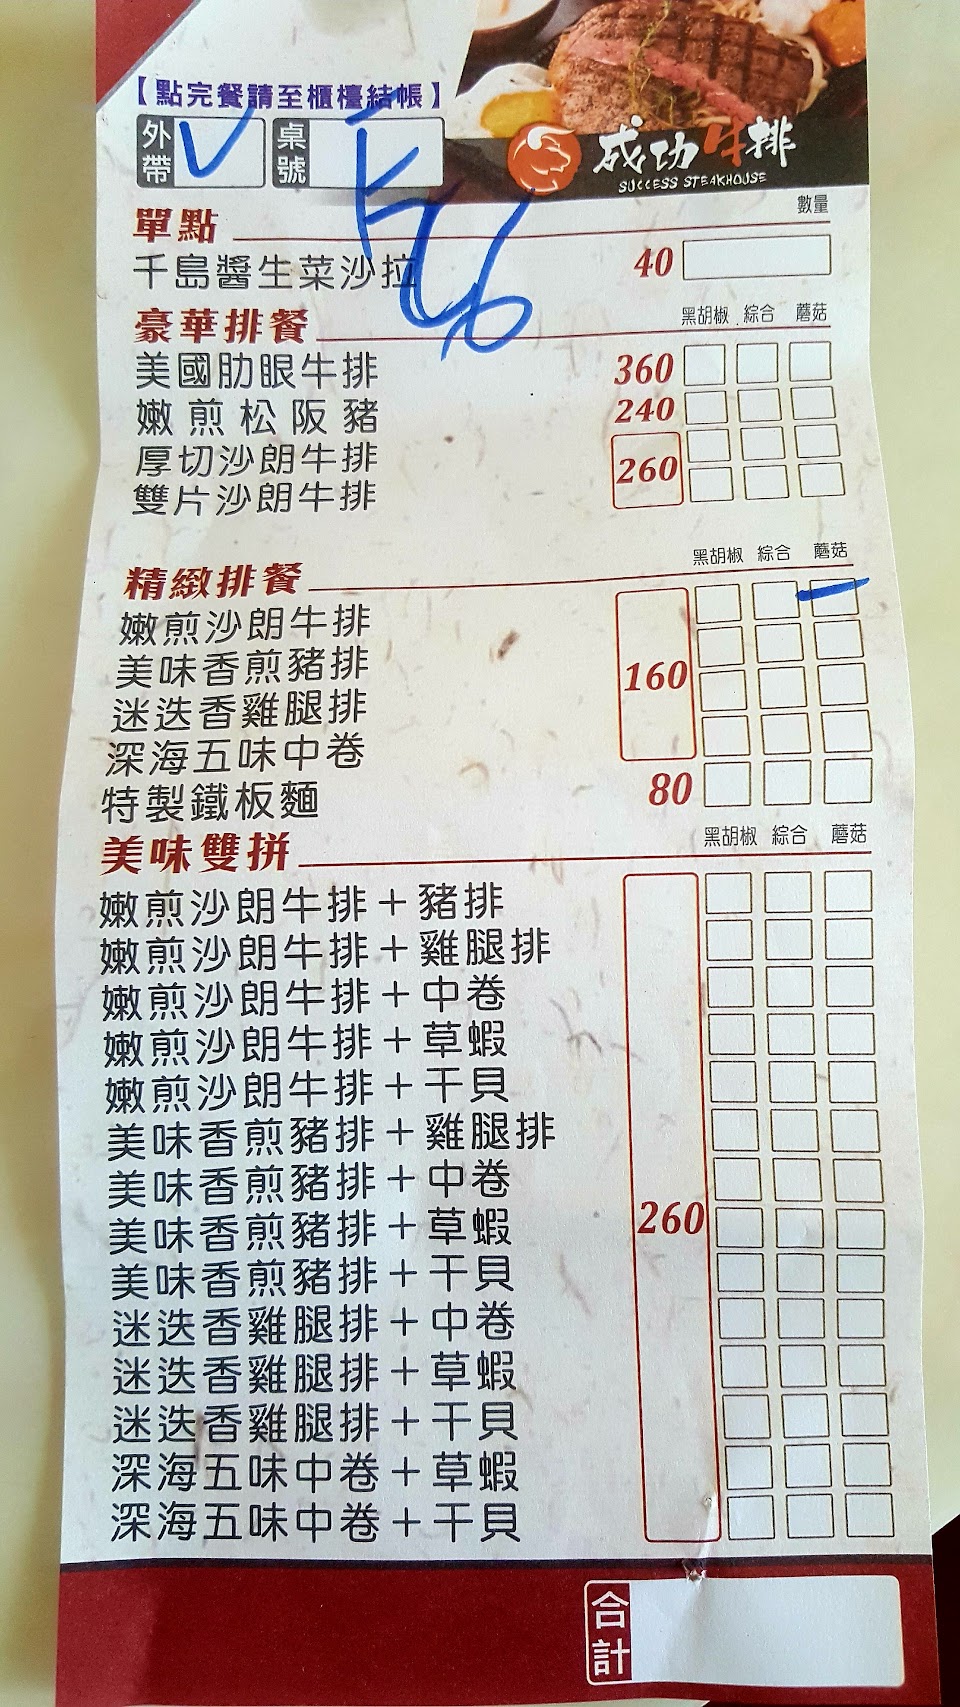 【點完餐請至櫃檯結帳】
外帶 桌號
成功牛排
SUCCESS STEAKHOUSE
單點 數量
千島醬生菜沙拉 40
豪華排餐 黑胡椒 綜合 蘑菇
美國肋眼牛排 360
嫩煎松阪豬 240
厚切沙朗牛排 260
雙片沙朗牛排
精緻排餐 黑胡椒 綜合 蘑菇
嫩煎沙朗牛排
美味香煎豬排 160
迷迭香雞腿排
深海五味中卷
特製鐵板麵 80
美味雙拼 黑胡椒 綜合 蘑菇
嫩煎沙朗牛排＋豬排
嫩煎沙朗牛排＋雞腿排
嫩煎沙朗牛排＋中卷
嫩煎沙朗牛排＋草蝦
嫩煎沙朗牛排＋干貝
美味香煎豬排＋雞腿排
美味香煎豬排＋中卷
美味香煎豬排＋草蝦 260
美味香煎豬排＋干貝
迷迭香雞腿排＋中卷
迷迭香雞腿排＋草蝦
迷迭香雞腿排＋干貝
深海五味中卷＋草蝦
深海五味中卷＋干貝
合計